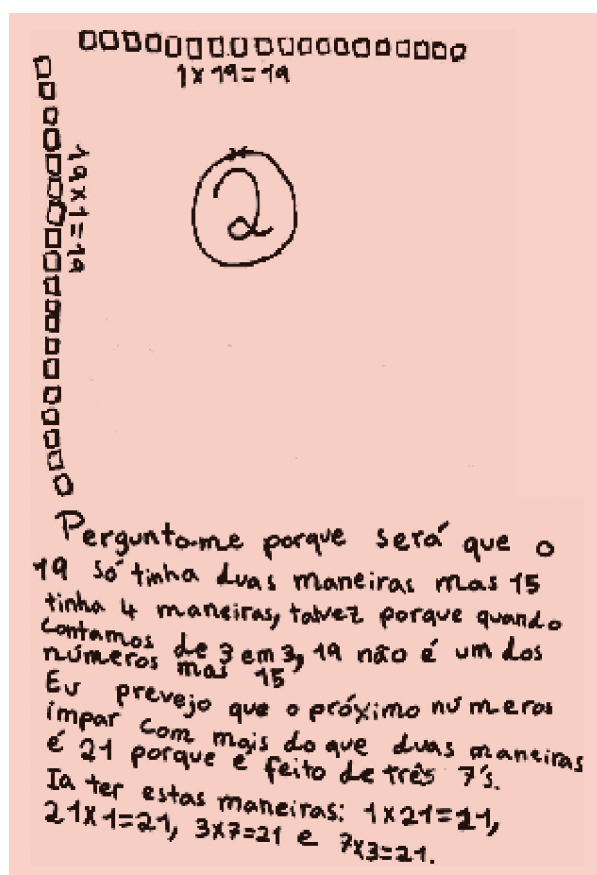 1x19=19
19x1=19
2
Pergunto-me porque será que o
19 só tinha duas maneiras mas 15
tinha 4 maneiras, talvez porque quando
contamos de 3 em 3, 19 não é um dos
números mas 15
Eu prevejo que o próximo numeros
ímpar com mais do que duas maneiras
é 21 porque é feito de três 7's.
Ia ter estas maneiras: 1x21=21,
21x1=21, 3x7=21 e 7x3=21.